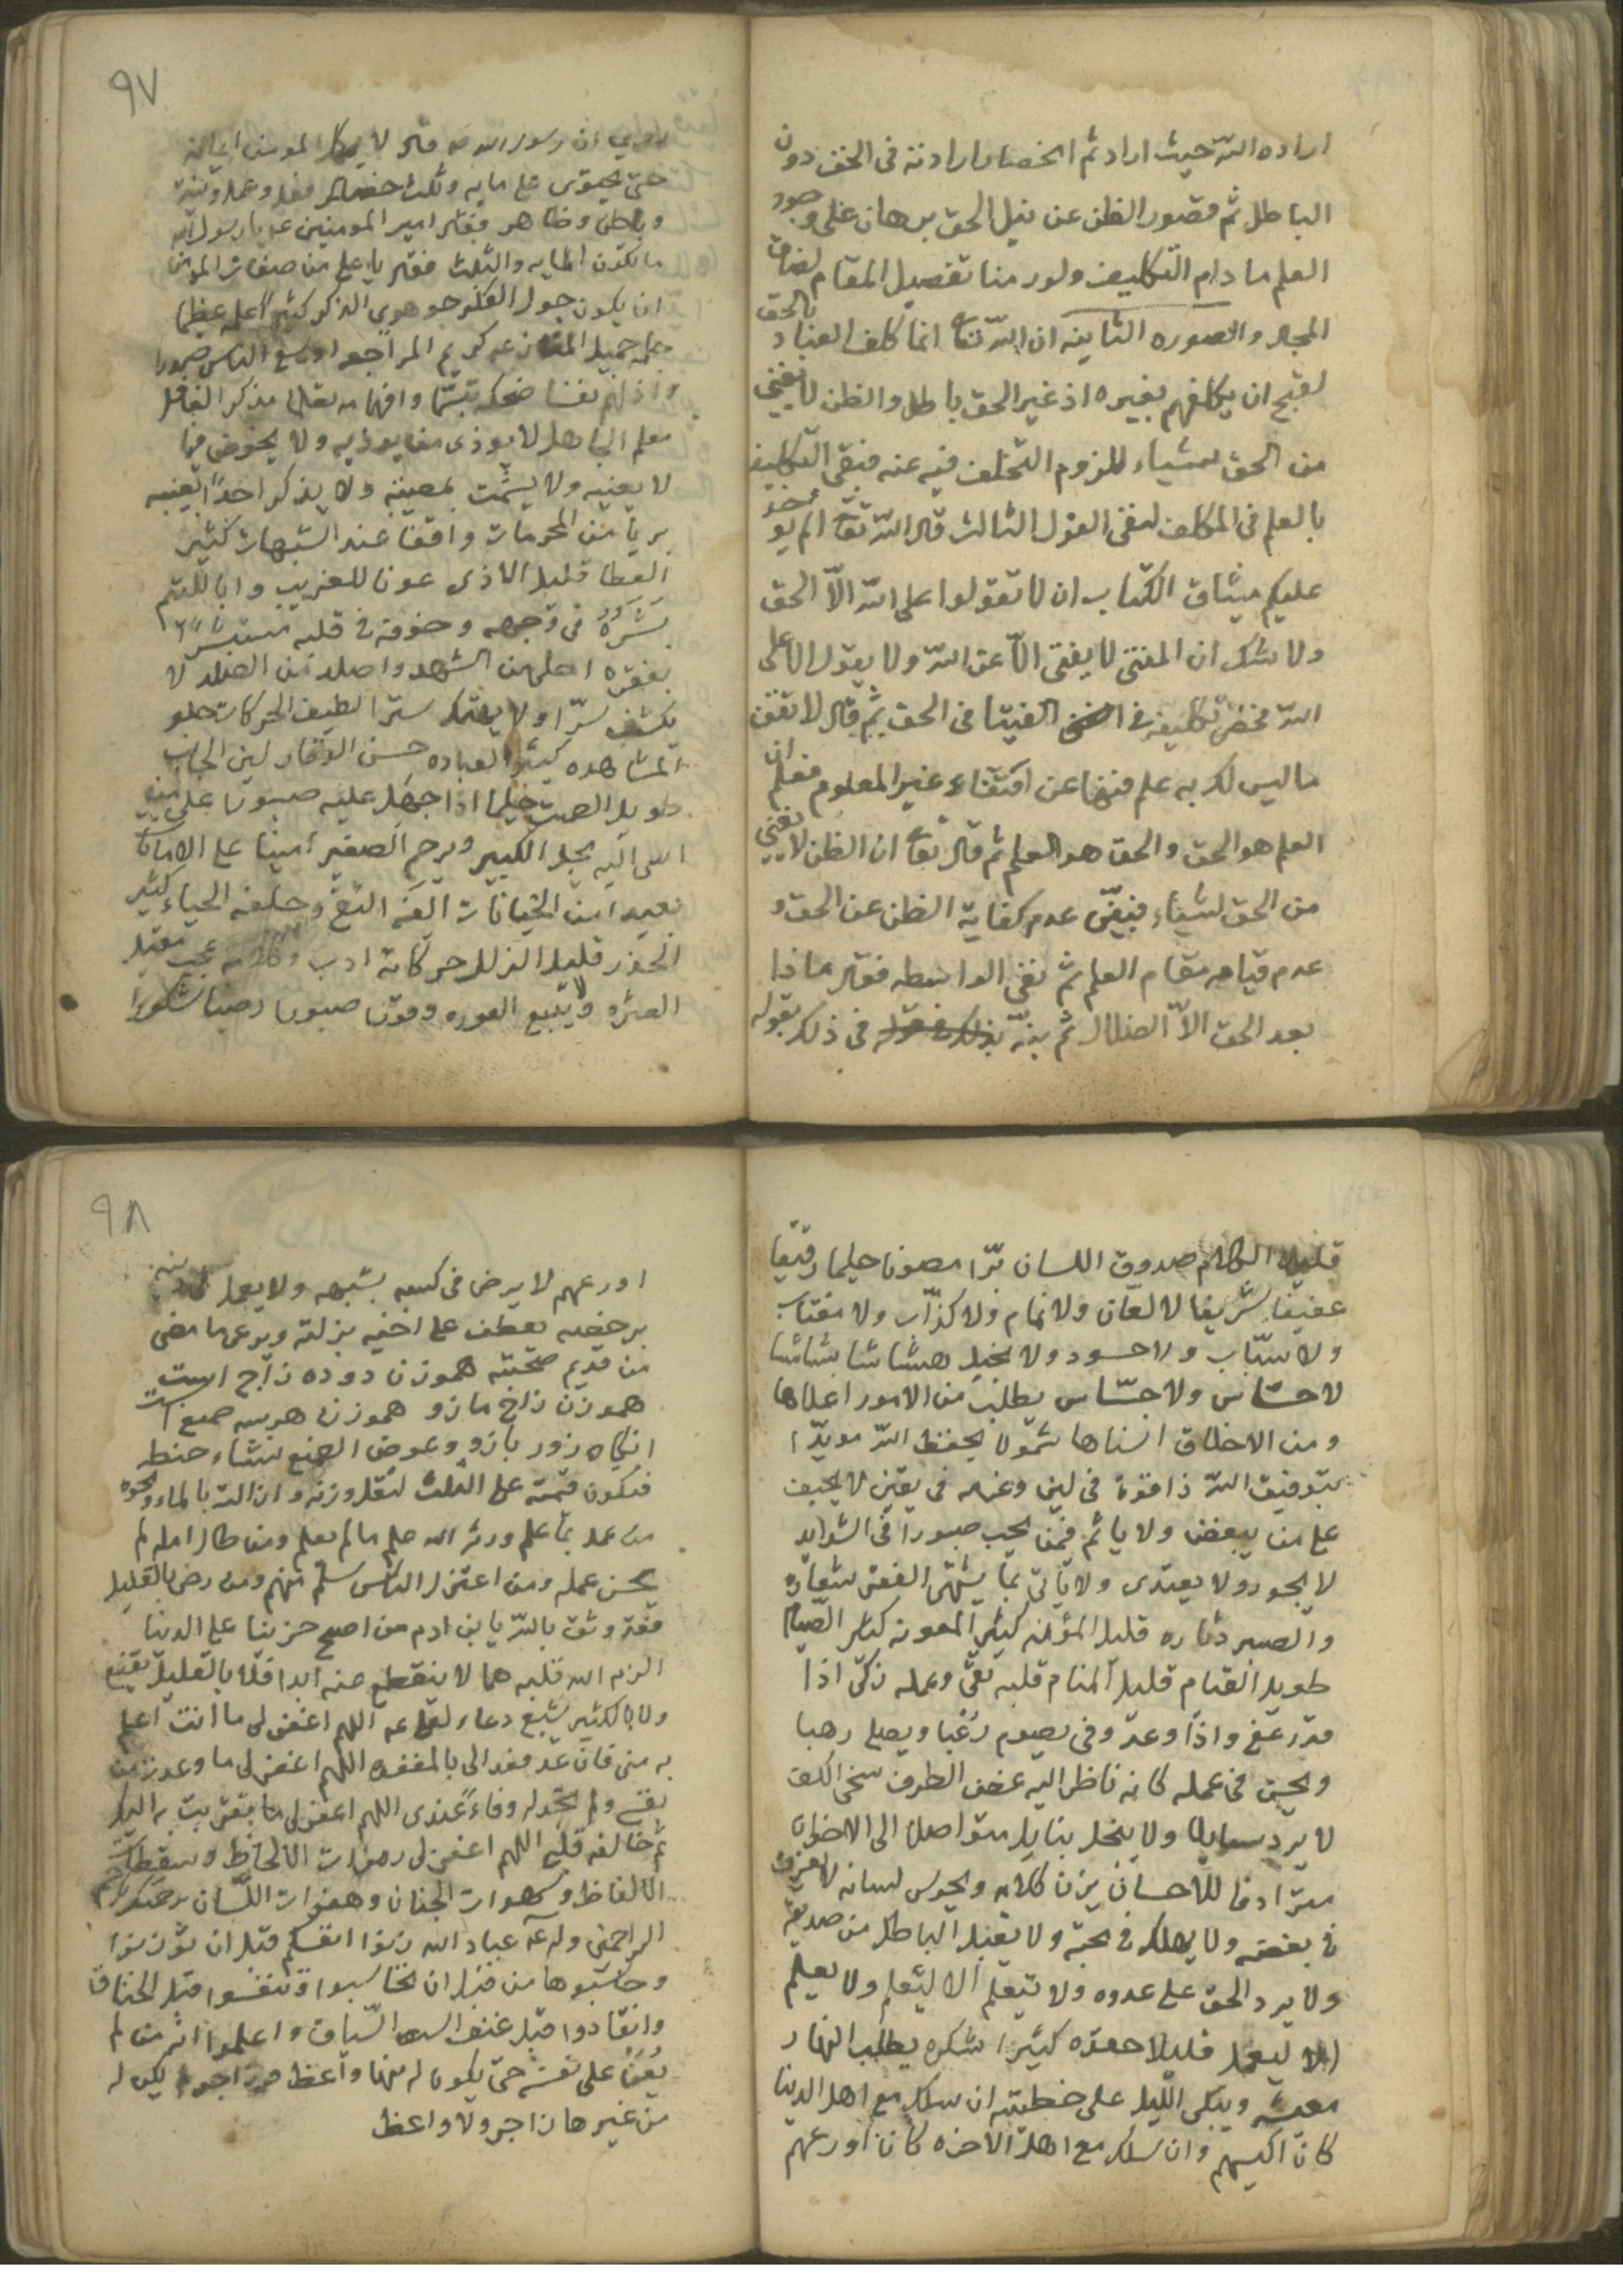 اراده الله حيث اراد ثم انحصار ارادته فى الحق دون
الباطل ثم قصور الظن عن نيل الحق برهان على وجود
العلم ما دام التكليف ولو رمنا تفصيل المقام لضاق
المجال والصوره الثانيه ان الله تعا انما كلف العباد بالحق
لقبح ان يكلفهم بغيره اذ غير الحق باطل والظن لا يغنى
من الحق شياء للزوم التخلف فيه عنه فبقى التكليف
بالعلم فى المكلف لنفى القول الثالث قال الله تعا الم يوخذ
عليكم ميثاق الكتاب ان لا تقولوا على الله الّا الحق
ولا شك ان المفتى لا يفتى الّا عن الله ولا يقول الا على
الله فحض تكليفه فى الفيتا فى الحق ثم قال لا تقف
ما ليس لك به علم فنهى عن اقتفاء غير المعلوم فعلم ان
العلم هو الحق والحق هو العلم ثم قال تعا ان الظن لا يغنى
من الحق شياء فبيّن عدم كفاية الظن عن الحق و
عدم قيامه مقام العلم ثم نفى الواسطه فقال ماذا
بعد الحق الّا الضلال ثم نبّه فى ذلك بقوله
٩٧
روي ان رسول الله ص قال لا يكمل المومن ايمانه
حتى يحتوى على مايه وثلث خصال فعل وعمل ونية
وباطن وظاهر فقال امير المومنين ع يا رسول الله
ما تكون المايه والثلث فقال يا على من صفات المومن
ان يكون جوال الفكر جوهرى الذكر كثيرا علمه عظيما
حلمه جميل المنازعه كريم المراجعه اوسع الناس صدرا
واذلهم نفسا ضحكه تبسّما وافهامه تعلما مذكر الغافل
معلم الجاهل لا يوذى من يوذيه ولا يخوض فيما
لا يعنيه ولا يشمت بمصيبه ولا يذكر احدا بغيبه
بريا من المحرمات واقفا عند الشبهات كثير
العطا قليل الاذى عونا للغريب وابا لليتيم
بشره فى وجهه وخوفه فى قلبه مستبشرا
بفقره احلى من الشهد واصلد من الصلد لا
يكشف سرّا ولا يهتك سترا لطيف الحركات حلو
المشاهده كثير العباده حسن الوقار لين الجانب
طويل الصمت حليما اذا جهل عليه صبورا على من
اسى اليه يجل الكبير ويرحم الصغير امينا على الامانات
بعيدا من الخيانات الفه التقى وحلفه الحياء كثير
الحذر قليل الزلل حركاته ادب وكلامه عجب مقيل
العثره ولا يتبع العوره وقورا صبورا رضيا شكورا
قليل الكلام صدوق اللسان برّا مصونا حليما رفيقا
عفيفا شريفا لا لعّان ولا نمام ولا كذّاب ولا مغتاب
ولا سبّاب ولا حسود ولا بخيل هشاشا بشاشا
لا حسّاس ولا جسّاس يطلب من الامور اعلاها
ومن الاخلاق اسناها شمولا بحفظ الله مويدا
بتوفيق الله ذا قوة فى لين وعزمه فى يقين لا يحيف
على من يبغض ولا ياثم فيمن يحب صبورا فى الشدايد
لا يجور ولا يعتدى ولا ياتى بما يشتهى الفقر شعاره
والصبر دثاره قليل المؤنه كثير المعونه كثير الصّيام
طويل القيام قليل المنام قلبه تقى وعمله زكى اذا
قدر عفى واذا وعد وفى يصوم رغبا ويصلى رهبا
ويحسن فى عمله كانه ناظر اليه غض الطرف سخى الكف
لا يرد سايلا ولا يبخل بنايل متواصلا الى الاخوان
مترادفا للاحسان يزن كلامه ويخرس لسانه لا يغرق
فى بغضه ولا يهلك فى حبّه ولا يقبل الباطل من صديقه
ولا يرد الحق على عدوه ولا يتعلم الا ليعلم ولا يعلم
الا ليعمل قليلا حقده كثيرا شكره يطلب النهار
معيشه ويبكى الليل على خطيئته ان سلك مع اهل الدنيا
كان اكيسهم وان سلك مع اهل الاخره كان اورعهم
٩٨
اورعهم لا يرضى فى كسبه بشبهه ولا يعمل فى دينه
برخصه يعطف على اخيه بزلته ويرعى ما مضى
من قديم صحبته هموزن دوده زاج است
هموزن زاج مازو هموزن هر سه صمغ است
انكاه زور بازو وعوض الصمغ نشاء حنطه
فيكون قيمته على الثلث لثقل وزنه وان الته بالماء
من عمل بما علم ورثه الله علم ما لم يعلم ومن طال امله لم
يحسن عمله ومن اعتزل الناس سلم منهم ومن رضى بالقليل
فقد وثق بالله يا بن ادم من اصبح حزينا على الدنيا
الزم الله قلبه هما لا ينقطع عنه ابدا فلا بالقليل يقنع
ولا بالكثير يشبع دعاء لعلى ع اللهم اغفر لى ما انت اعلم
به منى فان عدت فعد الى بالمغفره اللهم اغفر لى ما وعدت من
نفسى ولم تجد له وفاءً عندى اللهم اغفر لى ما تقربت به اليك
ثم خالفه قلبى اللهم اغفر لى رمزات الالحاظ وسقطات
الالفاظ وسهوات الجنان وهفوات اللّسان برحمتك يا ارحم
الراحمين وله ع عباد الله زنوا انفسكم قبل ان توزنوا
وحاسبوها من قبل ان تحاسبوا وتنفسوا قبل الخناق
وانقادوا قبل عنف السّياق واعلموا انه من لم
يُعَنْ على نفسه حتى يكون له منها واعظ وزاجر لم يكن له
من غيرها زاجر ولا واعظ